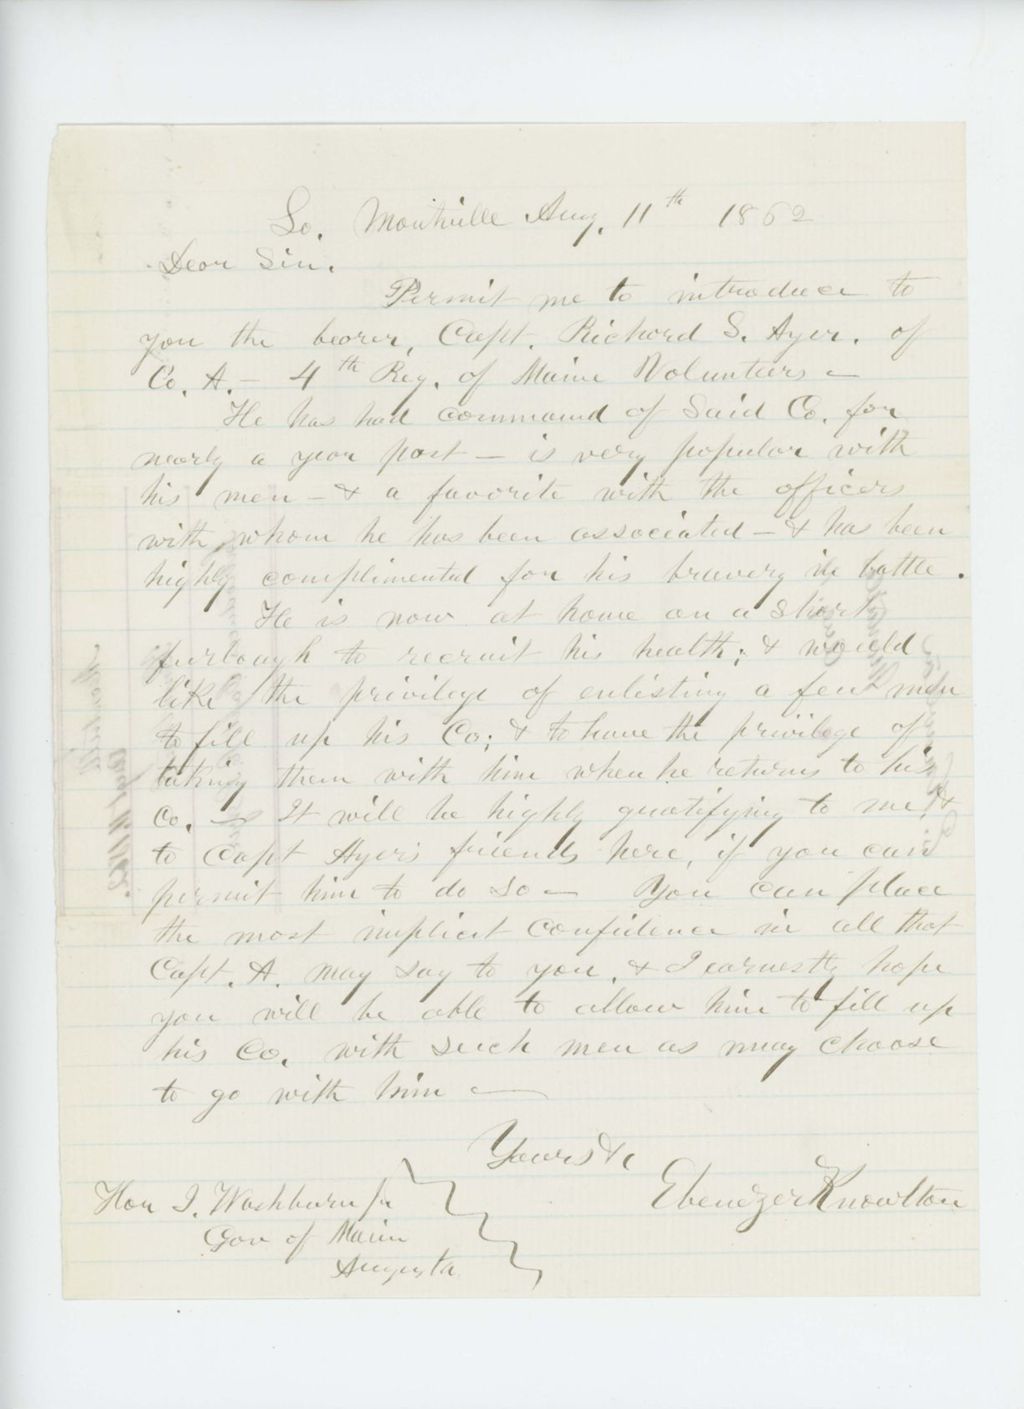 So. Montville Aug. 11th 1862
Dear Sir.
Permit me to introduce to
you the bearer, Capt. Richard S. Ayer. of
Co. A. - 4th Reg. of Maine Volunteers -
He has had command of Said Co. for
nearly a year past - is very popular with
his men - & a favorite with the officers
with whom he has been associated - & has been
highly complimented for his bravery in battle.
He is now at home on a short
furlough to recruit his health; & would
like the privilege of enlisting a few men
to fill up his Co; & to have the privilege of
taking them with him when he returns to his
Co. - It will be highly gratifying to me, &
to Capt Ayer's friends here, if you can
permit him to do so - You can place
the most implicit confidence in all that
Capt. A. may say to you, & I earnestly hope
you will be able to allow him to fill up
his Co. with such men as may choose
to go with him -
Yours &c
Ebenezer Knowlton
Hon I. Washburn Jr
Gov of Maine
Augusta